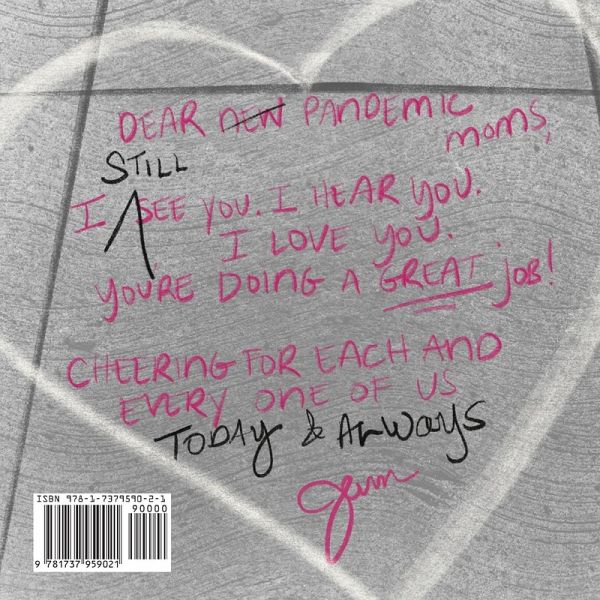 DEAR NEW PANDEMIC
MOMS,
STILL
I SEE YOU. I HEAR YOU.
I LOVE YOU.
YOU'RE DOING A GREAT JOB!
CHEERING FOR EACH AND
EVERY ONE OF US
TODAY & ALWAYS
ISBN 978-1-7379590-2-1
90000
9 781737 959021